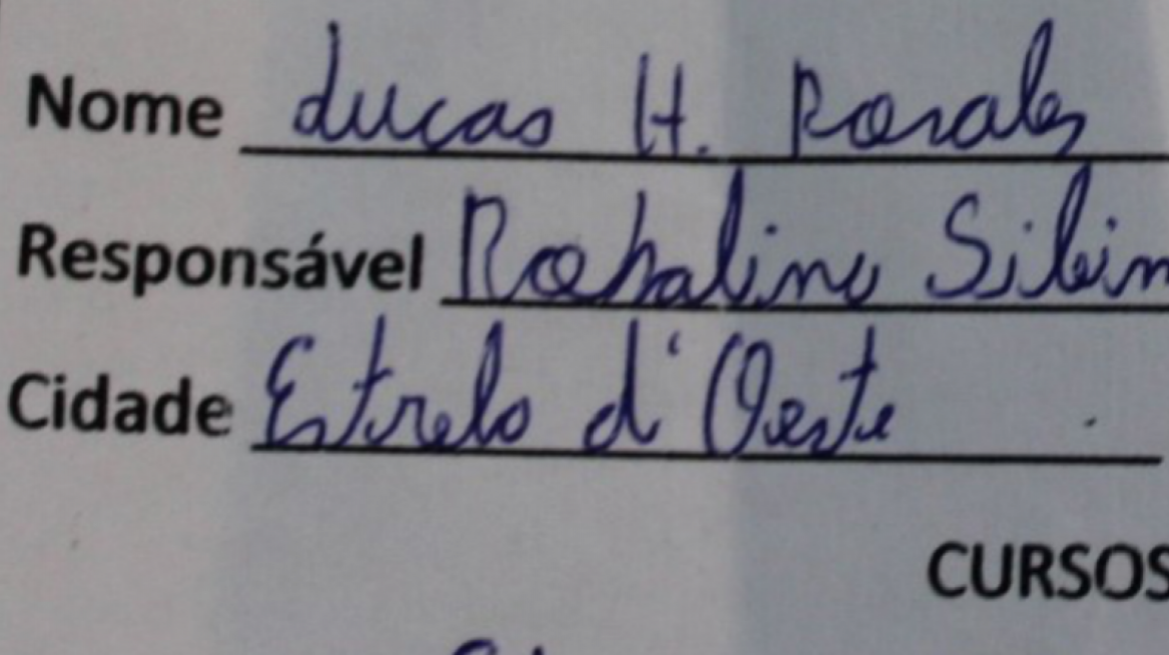 Nome Lucas H. Rosales
Responsável Rosalino
Cidade Estrela d'Oeste
CURSOS